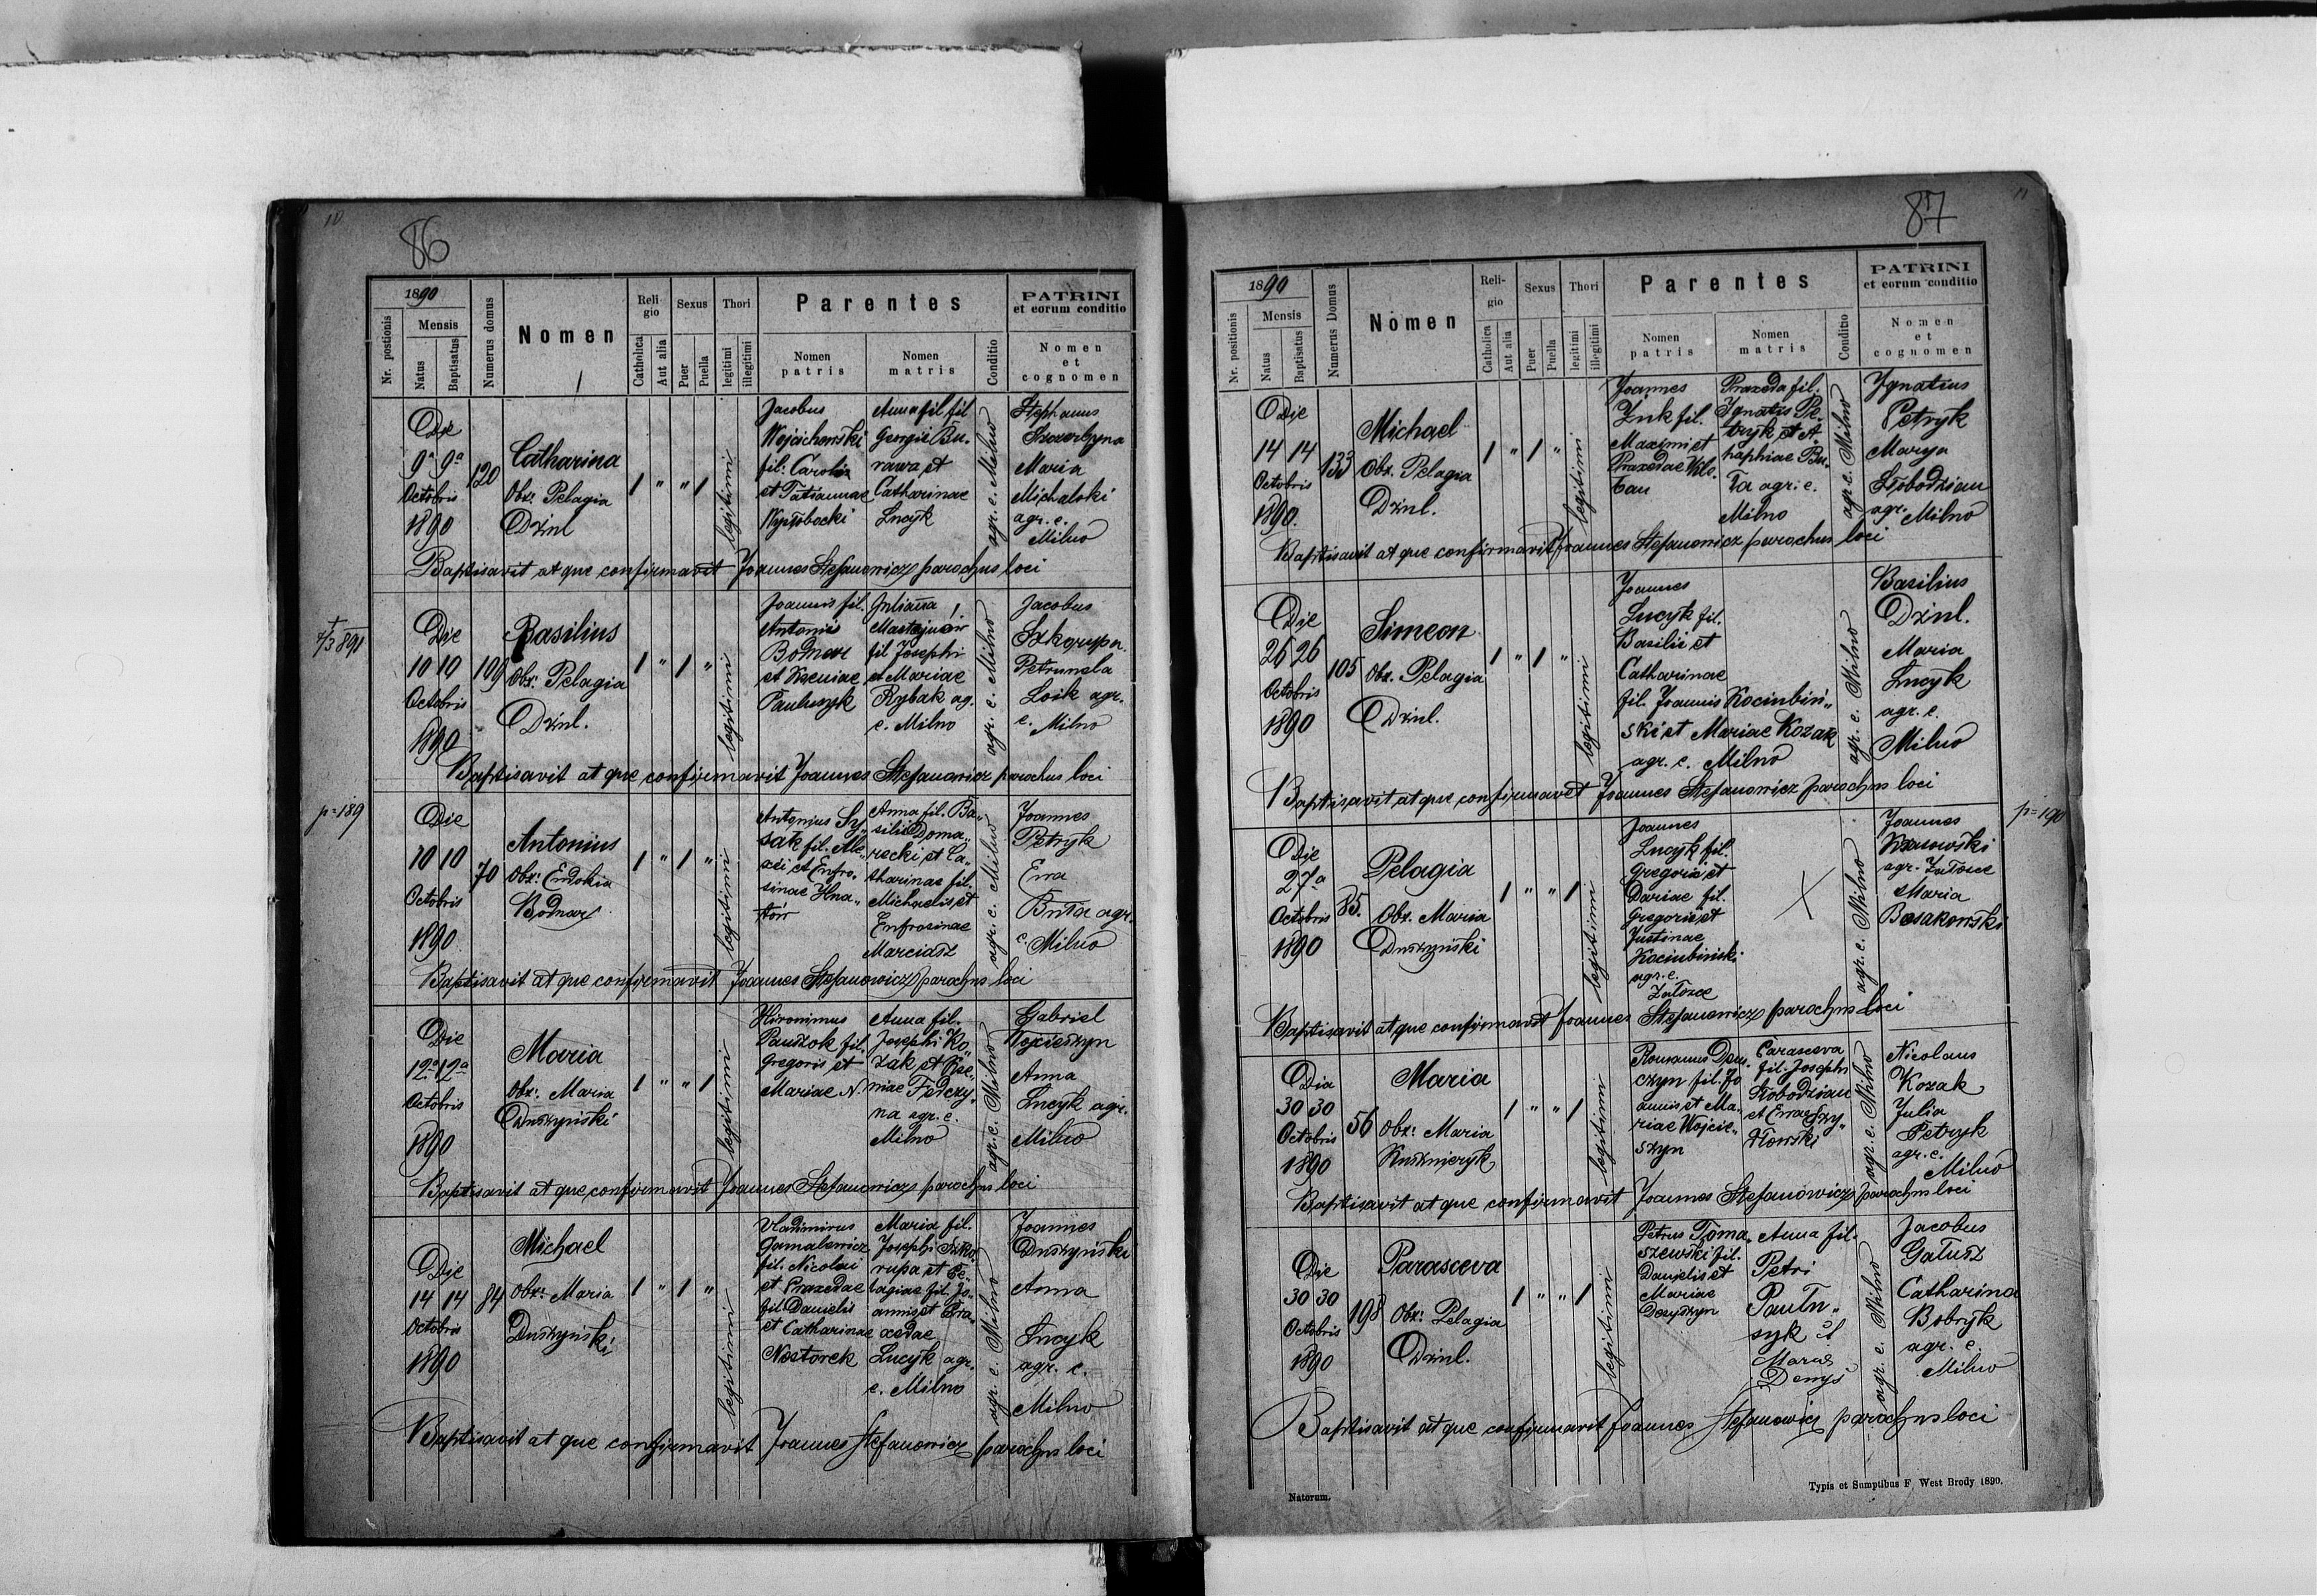 10
86
1890
Nr. postionis
Mensis
Natus
Baptisatus
Numerus domus
Nomen
Religio
Catholica
Aut alia
Sexus
Puer
Puella
Thori
legitimi
illegitimi
Parentes
Nomen patris
Nomen matris
Conditio
PATRINI
et eorum conditio
Nomen
et
cognomen
Die
9ª 9ª
Octobris
1890
120
Catharina
Obs: Pelagia
Dżul
1 " " 1
legitimi
Jacobus
Wojcichowski
fil. Caroli
et Tatiannae
Wysłobocki
Anna fil fil
Georgii Bu-
rawa et
Catharinae
Lucyk
agr. c. Milno
Stephanus
Maria
Michalski
agr. c.
Milno
Baptisavit at que confirmavit Joannes Stefanowicz parochus loci
4/3 891
Die
10 10
Octobris
1890
109
Basilius
Obs: Pelagia
Dżul.
1 " 1 "
legitimi
Joannis fil.
Antonii
Bodnar
et Xseniae
Pauluszyk
Julianna
fil Josephi
et Mariae
Rybak ag.
c. Milno
agr. c. Milno
Jacobus
Petrunela
Łoik agr.
c. Milno
Baptisavit at que confirmavit Joannes Stefanowicz parochus loci
p=189
Die
10 10
Octobris
1890
70
Antonius
Obs: Eudokia
Bodnar
1 " 1 "
legitimi
Antonius Sy-
sak fil. Ale-
xei et Eufro-
sinae Hna-
tów
Anna fil. Ba-
silii Doma-
recki et Ca-
tharinae fil.
Michaelis et
Eufrosinae
Marciasz
agr. c. Milno
Joannes
Petryk
Eva
Buła agr.
c. Milno
Baptisavit at que confirmavit Joannes Stefanowicz parochus loci
Die
12ª 12ª
Octobris
1890
Maria
Obs: Maria
Duszyński
1 " " 1
legitimi
Hironimus
Pauszok fil.
Gregoris et
Mariae N.
Anna fil.
Josephi Ko-
zak et Xse-
niae Fedczy-
na agr. c.
Milno
agr. c. Milno
Gabriel
Wojcieszyn
Anna
Lucyk agr.
Milno
Baptisavit at que confirmavit Joannes Stefanowicz parochus loci
Die
14 14
Octobris
1890
84
Michael
Obs: Maria
Duszyński
1 " 1 "
legitimi
Vladimirus
Gamalewicz
fil. Nicolai
et Praxedae
fil. Danielis
et Catharinae
Nestorek
Maria fil.
Josephi Szko-
rupa et Pe-
lagiae fil. Jo-
annis et Pra-
xedae
Lucyk agr.
c. Milno
agr. c. Milno
Joannes
Duszyński
Anna
Lucyk
agr. c.
Milno
Baptisavit at que confirmavit Joannes Stefanowicz parochus loci
11
87
1890
Nr. positionis
Mensis
Natus
Baptisatus
Numerus Domus
Nomen
Reli-
gio
Catholica
Aut alia
Sexus
Puer
Puella
Thori
legitimi
illegitimi
Parentes
Nomen
patris
Nomen
matris
Conditio
PATRINI
et eorum conditio
Nomen
et
cognomen
Die
14 14
Octobris
1890.
133
Michael
Obs. Pelagia
Dżul.
1 " 1 "
legitimi
Joannes
Żuk fil.
Maximi et
Praxedae
Praxeda fil.
Ignatis Pe-
tryk et A-
haphiae Bu-
ła agr. c.
Milno
agr. c. Milno
Ignatius
Petryk
Marya
Słobodzian
agr. Milno
Baptisavit at que confirmavit Joannes Stefanowicz parochus loci
Die
26 26
Octobris
1890
105
Simeon
Obs. Pelagia
Dżul.
1 " 1 "
legitimi
Joannes
Lucyk fil.
Basilii et
Catharinae
fil. Joannis Kociubiń-
ski et Mariae Kozak
agr. c. Milno
agr. c. Milno
Basilius
Dżul.
Maria
Lucyk
agr. c.
Milno
Baptisavit at que confirmavit Joannes Stefanowicz parochus loci
p=190
Die
27ª
Octobris
1890
85.
Pelagia
Obs. Maria
Duszyński
1 " " 1
legitimi
Joannes
Lucyk fil.
Gregorii et
Dariae fil.
Gregorii et
Justinae
Kociubiński
agr. c.
Załoźce
agr. c. Milno
Joannes
agr. Załoźce
Maria
Bosakowski
Baptisavit at que confirmavit Joannes Stefanowicz parochus loci
Dia
30 30
Octobris
1890
56
Maria
Obs: Maria
Kusznieryk
1 " " 1
legitimi
Romanus Den-
czyn fil. Jo
annis et Ma-
riae Wojcie-
szyn
Parasceva
fil. Josephi
Słobodzian
et Evae Szy-
łowski
agr. c. Milno
Nicolaus
Kozak
Julia
Petryk
agr. c.
Milno
Baptisavit at que confirmavit Joannes Stefanowicz parochus loci
Die
30 30
Octobris
1890
198
Parasceva
Obs: Pelagia
Dżul.
1 " " 1
legitimi
Petrus Toma-
szewski fil.
Danielis et
Mariae
Anna fil.
Petri
Paulu-
syk et
Mariae
Denys
agr. c. Milno
Jacobus
Gałusz
Catharina
Bobryk
agr. c.
Milno
Baptisavit at que confirmavit Joannes Stefanowicz parochus loci
Natorum.
Typis et Sumptibus F. West Brody 1890.